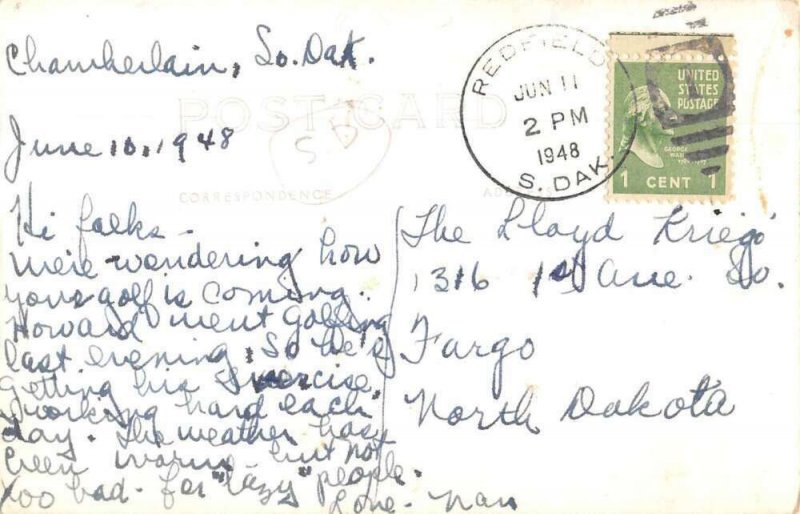 Chamberlain, So. Dak.
June 10, 1948
Hi folks -
We're wondering how
your golf is coming.
Howard went golfing
last evening, so he's
getting his exercise,
working hard each
day. The weather has
been warm - but not
too bad - for "lazy" people.
Love - Nan
POST CARD
S D
CORRESPONDENCE
REDFIELD
JUN 11
2 PM
1948
S. DAK.
UNITED
STATES
POSTAGE
GEORGE
1 CENT 1
The Lloyd Krieg
1316 1st Ave. So.
Fargo
North Dakota